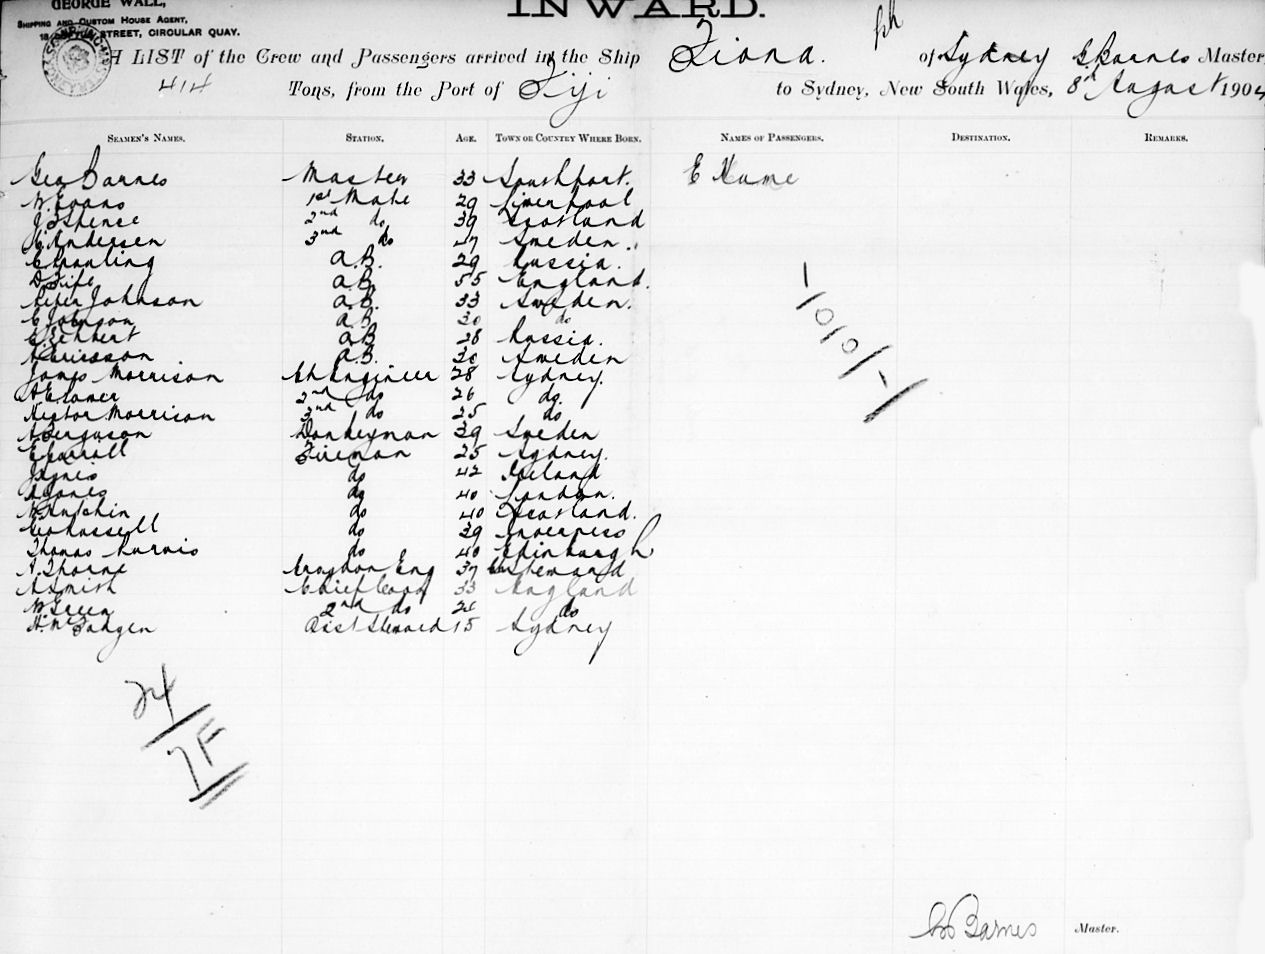 GEORGE WALL,
INWARD.
SHIPPING AND CUSTOM HOUSE AGENT,
STREET, CIRCULAR QUAY.
A LIST of the Crew and Passengers arrived in the Ship Fiona. of Sydney G. Barnes Master,
414 Tons, from the Port of Fiji to Sydney, New South Wales, 8th August 1904
SEAMEN'S NAMES. STATION. AGE. TOWN OR COUNTRY WHERE BORN. NAMES OF PASSENGERS. DESTINATION. REMARKS.
Geo Barnes Master 33 Southport. E Hume
W. Evans 1st Mate 29 Liverpool
J. Spence 2nd do 39 Scotland
Andersen 3rd do 47 Sweden.
A.B. 29 Russia.
D. Fife A.B. 55 England.
Peter Johnson A.B. 33 Sweden.
C Johnson A.B. 30 do
A.B. 28 Russia.
A Ericsson A.B. 30 Sweden
James Morrison Ch Engineer 28 Sydney.
2nd do 26 do.
Hector Morrison 3rd do 25 do
A Ferguson Donkeyman 39 Sweden
Fireman 25 Sydney.
do 42 Ireland
do 40 London.
do 40 Scotland.
Geo Russell do 39 Inverness
Thomas do 40 Edinburgh
A. Thorne Croydon Eng 37 Steward
A Smith Chief Cook 33 England
W Green 2nd do do
Asst Steward 15 Sydney
1/0/0/-1
24
7F
Geo Barnes Master.